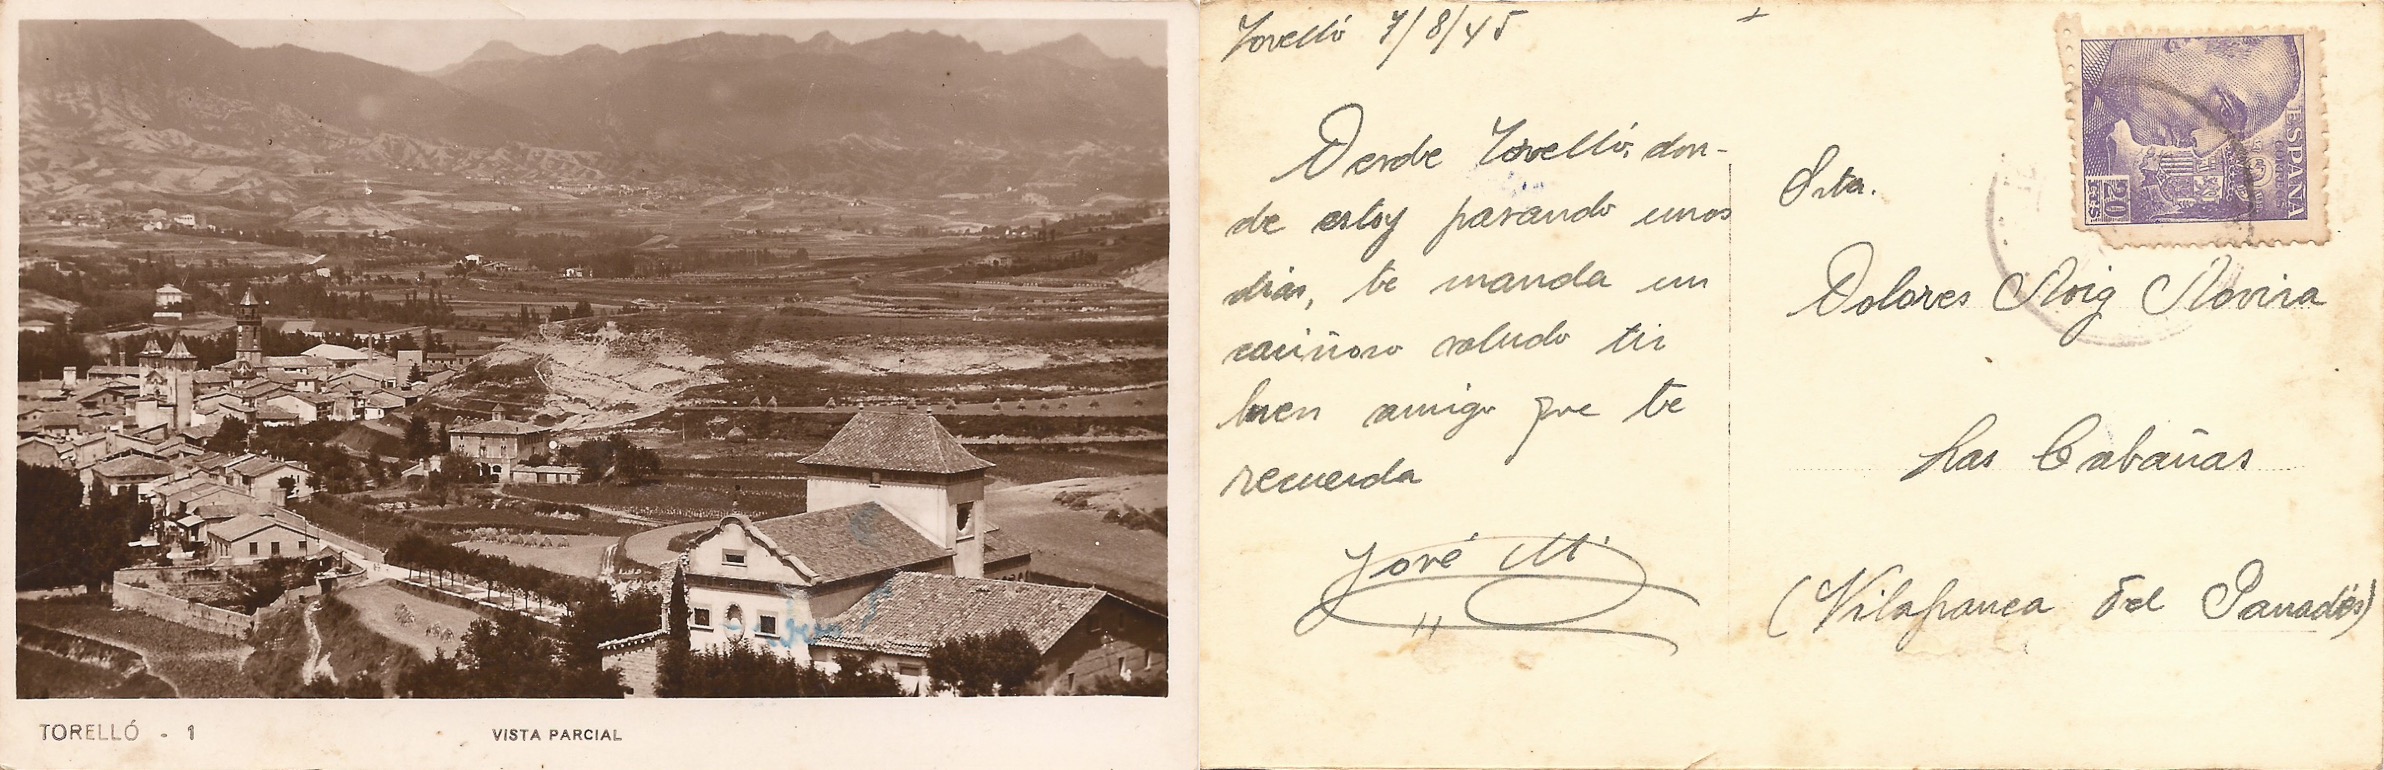 TORELLÓ - 1
VISTA PARCIAL
Torelló 7/8/45
Desde Torelló, don-
de estoy pasando unos
dias, te manda un
cariñoso saludo tu
buen amigo que te
recuerda
José Mª
ESPAÑA
CORREOS
20
CTS
Srta.
Dolores Roig Rovira
Las Cabañas
(Vilafranca del Panadés)